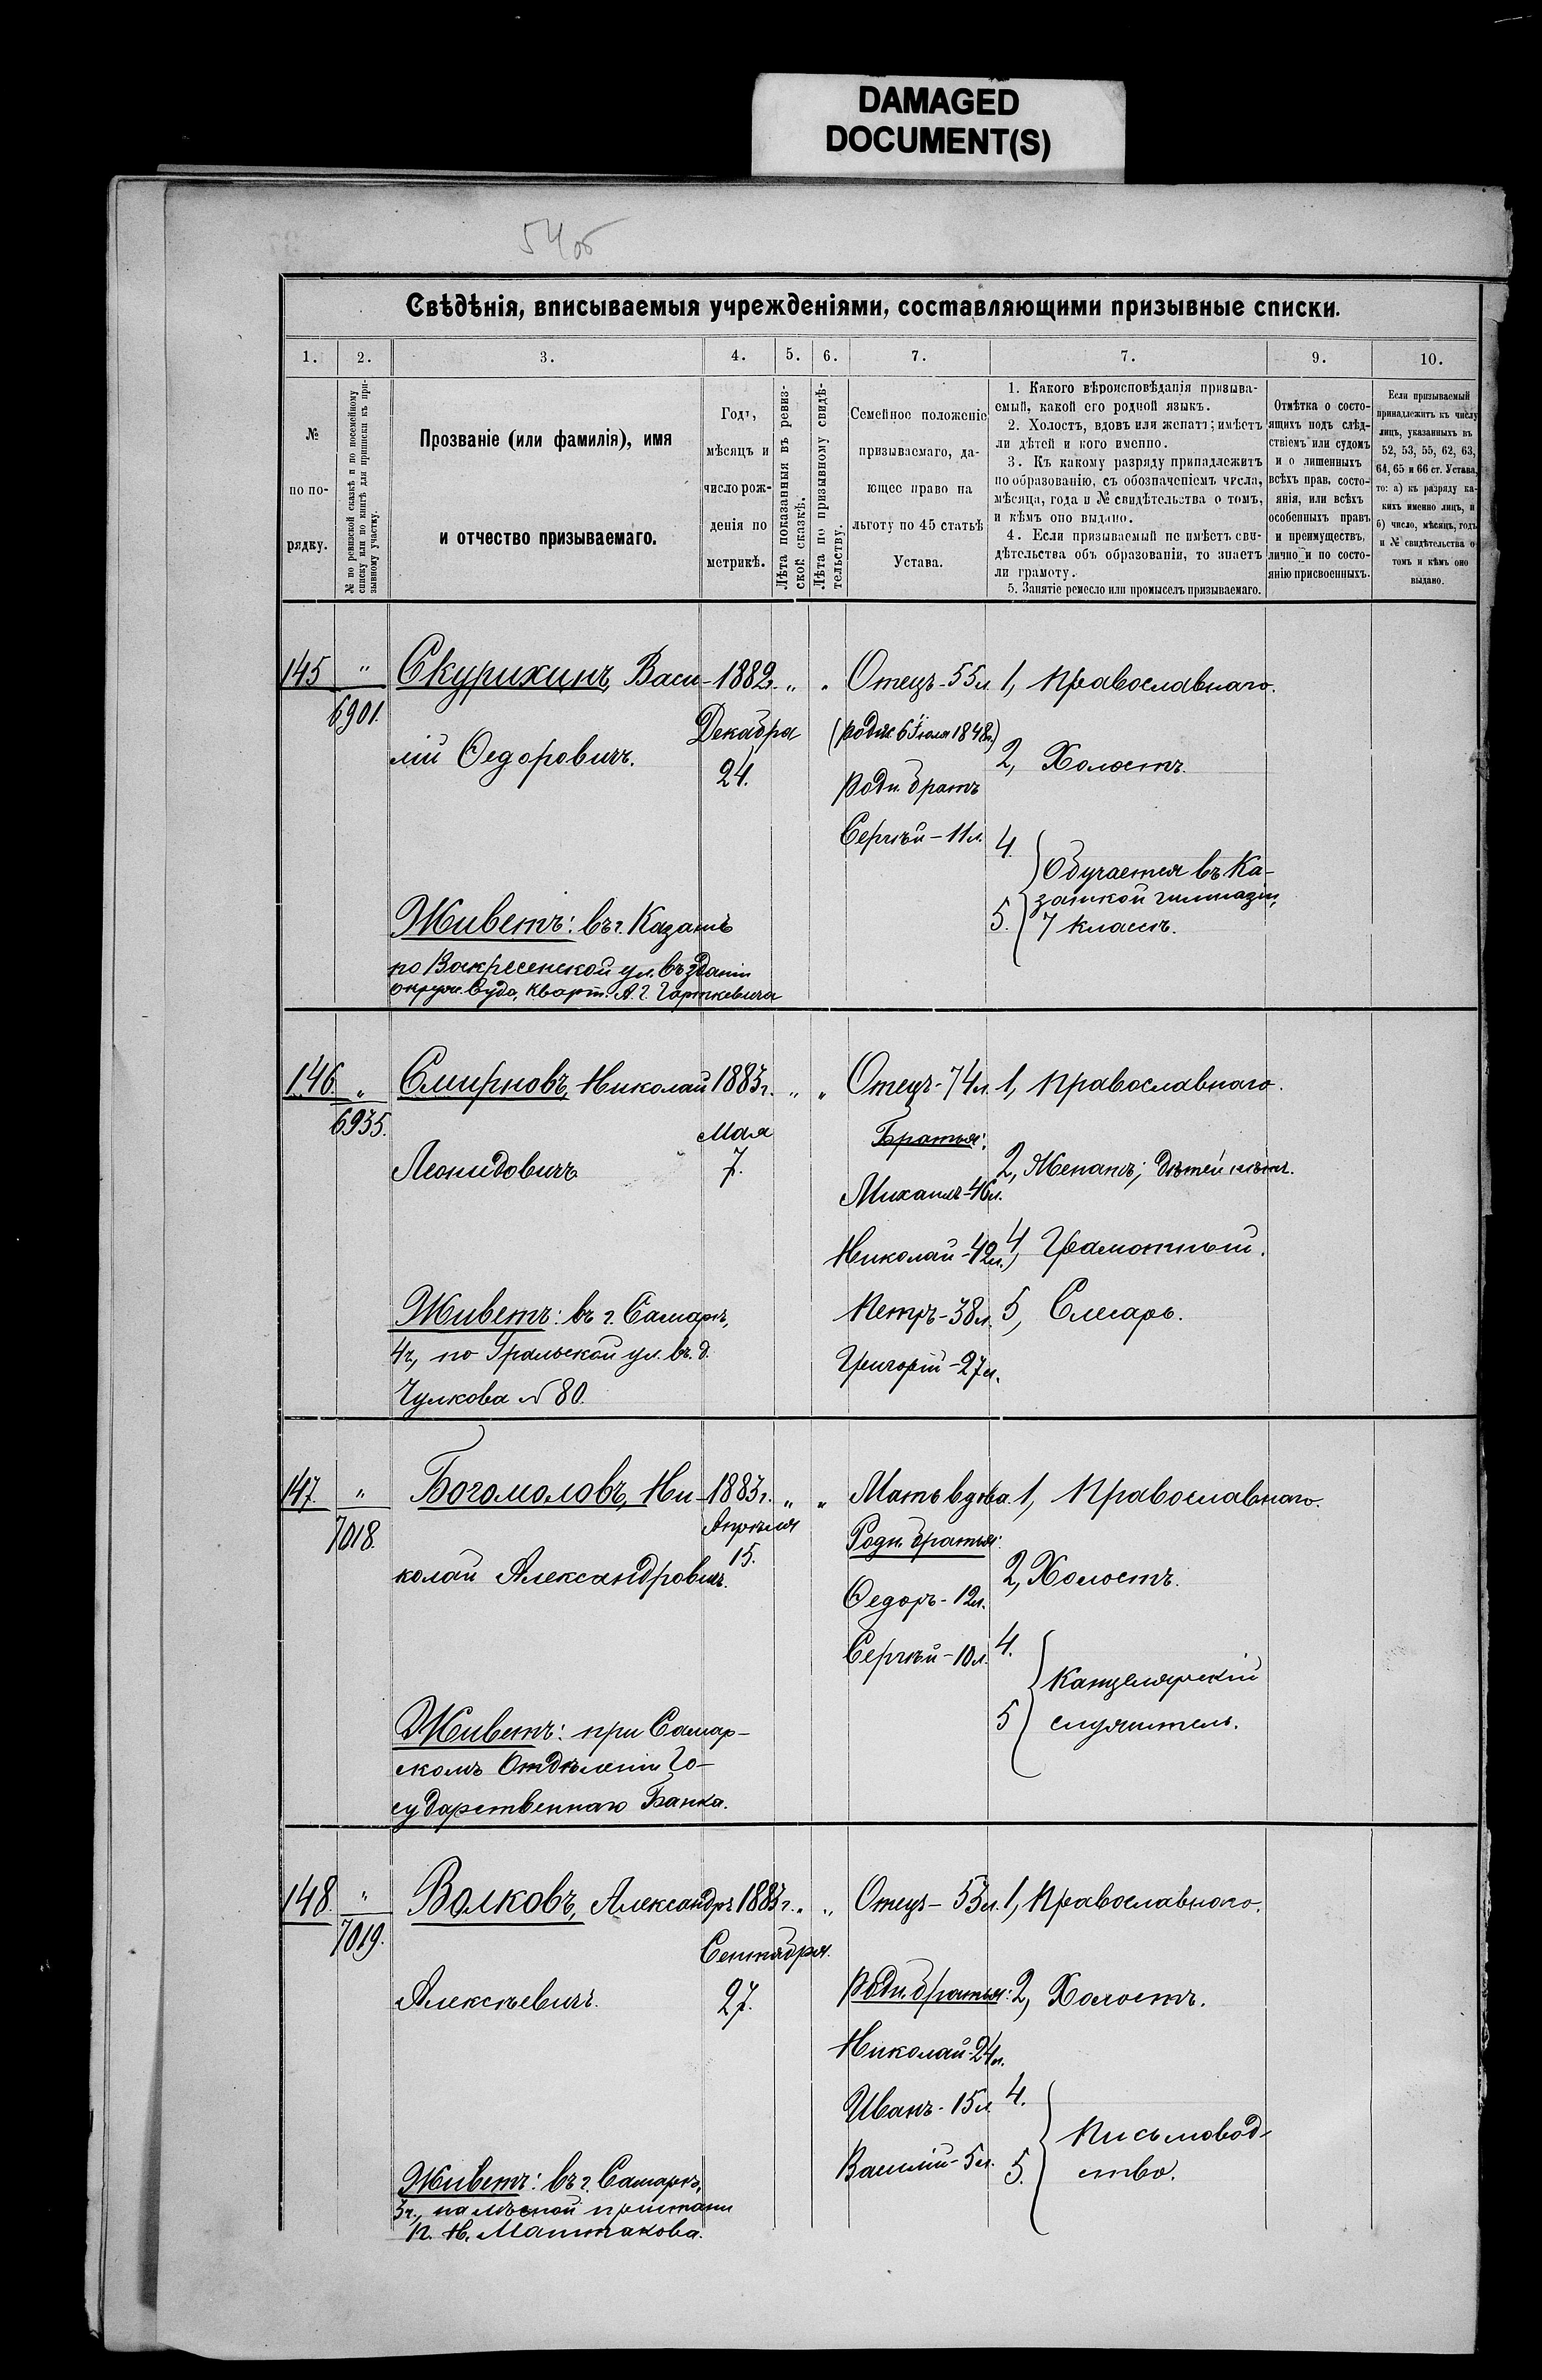 DAMAGED
DOCUMENT(S)
54об
Свѣдѣнія, вписываемыя учрежденіями, составляющими призывные списки.
1.
2.
3.
4.
5.
6.
7.
7.
9.
10.
№
по по-
рядку.
№ по ревизской сказкѣ и по посемейному
списку или по книгѣ для приписки къ при-
зывному участку.
Прозваніе (или фамилія), имя
и отчество призываемаго.
Годъ,
мѣсяцъ и
число рож-
денія по
метрикѣ.
Лѣта показанныя въ ревиз-
ской сказкѣ.
Лѣта по призывному свидѣ-
тельству.
Семейное положеніе
призываемаго, да-
ющее право на
льготу по 45 статьѣ
Устава.
1. Какого вѣроисповѣданія призыва-
емый, какой его родной языкъ.
2. Холостъ, вдовъ или женатъ; имѣетъ
ли дѣтей и кого именно.
3. Къ какому разряду принадлежитъ
по образованію, съ обозначеніемъ числа,
мѣсяца, года и № свидѣтельства о томъ,
и кѣмъ оно выдано.
4. Если призываемый не имѣетъ сви-
дѣтельства объ образованіи, то знаетъ
ли грамоту.
5. Занятіе ремесло или промыселъ призываемаго.
Отмѣтка о состо-
ящихъ подъ слѣд-
ствіемъ или судомъ
и о лишенныхъ
всѣхъ прав, состо-
янія, или всѣхъ
особенныхъ правъ
и преимуществъ,
лично и по состо-
янію присвоенныхъ.
Если призываемый
принадлежитъ къ числу
лицъ, указанныхъ въ
52, 53, 55, 62, 63,
64, 65 и 66 ст. Устава,
то: а) къ разряду ка-
кихъ именно лицъ, и
б) число, мѣсяцъ, годъ
и № свидѣтельства о
томъ и кѣмъ оно
выдано.
145 " Скурихинъ, Васи- 1882. " " Отецъ-55л. 1, Православнаго.
6901.
лій Ѳедоровичъ. Декабря (родил. 6 Іюля 1848г.)
24. 2, Холостъ.
Родн. братъ
Сергѣй-11л. 4.
Обучается въ Ка-
занской гимназіи,
5. 7 классъ.
Живетъ: въ г. Казань
по Воскресенской ул. въ зданіи
Окруж. Суда, кварт. А. Г. Горткевича
146. " Смирновъ, Николай 1883г. " " Отецъ-74л. 1, Православнаго.
6935.
Леонидовичъ Мая 7. Братья: 2, Женатъ; дѣтей нѣтъ.
Михаилъ-46л.
Николай-42л. 4, Грамотный.
Петръ-38л. 5, Слесарь.
Григорій-27л.
Живетъ: въ г. Самарѣ,
4ч, по Уральской ул. въ д.
Чулкова № 80.
147. " Богомоловъ, Ни- 1883г. " " Мать вдова. 1, Православнаго.
7018.
колай Александровичъ. Апрѣля 15. Родн. братья: 2, Холостъ.
Ѳедоръ-12л.
Сергѣй-10л. 4.
Канцелярскій
5 служитель.
Живетъ: при Самар-
скомъ Отдѣленіи Го-
сударственнаго Банка.
148. " Волковъ, Александръ 1883г. " " Отецъ-53л. 1, Православнаго.
7019.
Алексѣевичъ. Сентября. 27. Родн. братья: 2, Холостъ.
Николай-24л.
Иванъ-15л. 4.
Письмовод-
Василій-5л. 5. ство.
Живетъ: въ г. Самарѣ,
3ч., на лѣсной пристани
П. Н. Маштакова.